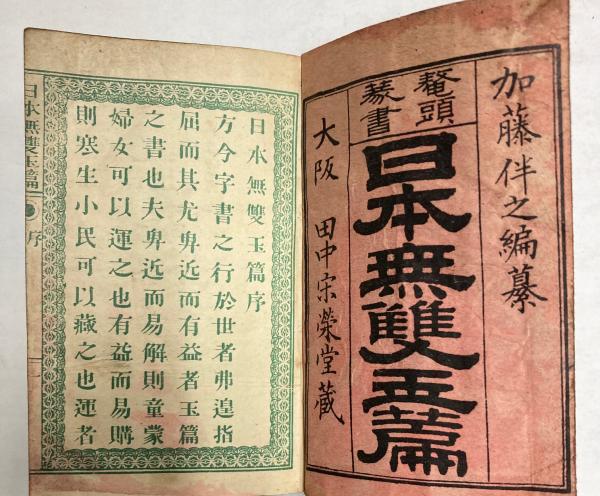 加藤伴之編纂
鼇頭
篆書
日本無雙玉篇
大阪 田中宋榮堂藏
日本無雙玉篇序
方今字書之行於世者弗遑指
屈而其尤卑近而有益者玉篇
之書也夫卑近而易解則童蒙
婦女可以運之也有益而易購
則寒生小民可以藏之也運者
日本無雙玉篇
序